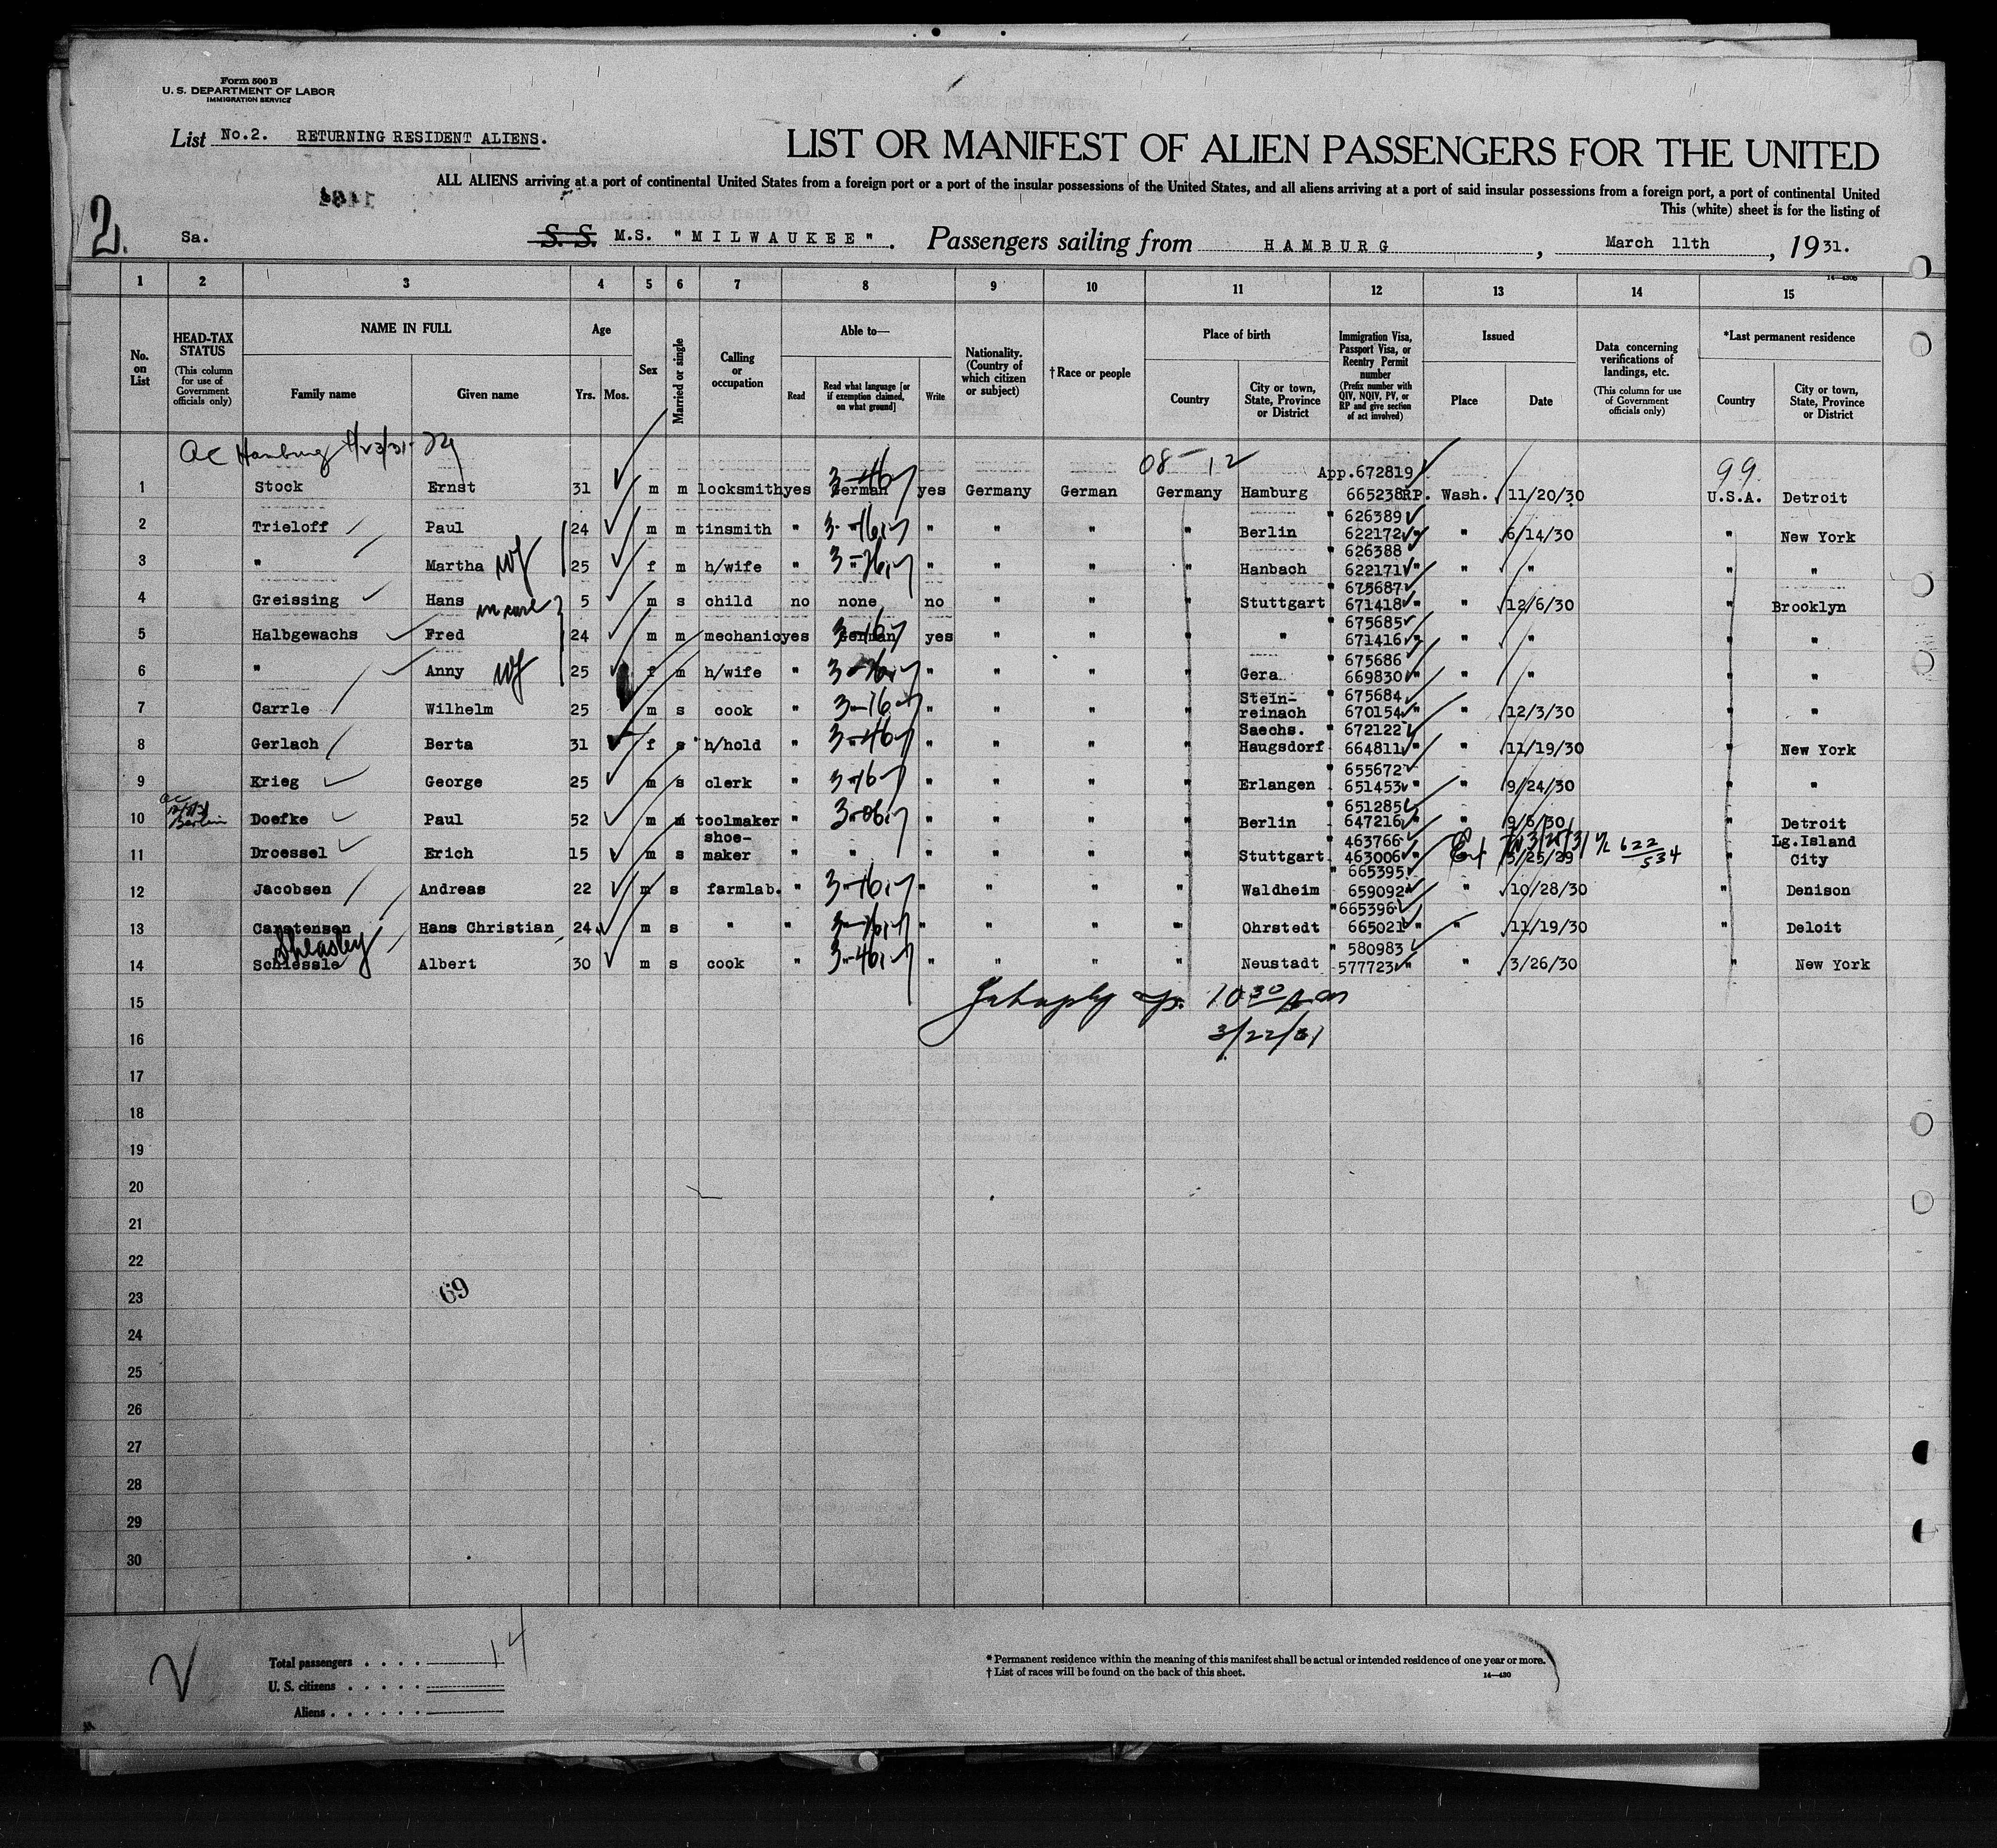 Form 500 B
U. S. DEPARTMENT OF LABOR
IMMIGRATION SERVICE
List No.2. RETURNING RESIDENT ALIENS.
LIST OR MANIFEST OF ALIEN PASSENGERS FOR THE UNITED
ALL ALIENS arriving at a port of continental United States from a foreign port or a port of the insular possessions of the United States, and all aliens arriving at a port of said insular possessions from a foreign port, a port of continental United
This (white) sheet is for the listing of
2.
Sa.
S. S. M.S. "MILWAUKEE". Passengers sailing from HAMBURG, March 11th, 1931.
14-430b
1 2 3 4 5 6 7 8 9 10 11 12 13 14 15
No. on List
HEAD-TAX STATUS (This column for use of Government officials only)
NAME IN FULL
Family name Given name
Age
Yrs. Mos.
Sex
Married or single
Calling or occupation
Able to—
Read Read what language [or if exemption claimed, on what ground] Write
Nationality. (Country of which citizen or subject)
†Race or people
Place of birth
Country City or town, State, Province or District
Immigration Visa, Passport Visa, or Reentry Permit number (Prefix number with QIV, NQIV, PV, or RP and give section of act involved)
Issued
Place Date
Data concerning verifications of landings, etc. (This column for use of Government officials only)
*Last permanent residence
Country City or town, State, Province or District
Hamburg
08-12
99
App.672819
1 Stock Ernst 31 m m locksmith yes German yes Germany German Germany Hamburg 665238RP. Wash. 11/20/30 U.S.A. Detroit
" 626389
2 Trieloff Paul 24 m m tinsmith " 3-16 " " " " Berlin 622172 " " 6/14/30 " New York
" 626388
3 " Martha wf 25 f m h/wife " " " " " Hanbach 622171 " " " " "
" 675687
4 Greissing Hans 5 m s child no none no " " " Stuttgart 671418 " " 12/6/30 " Brooklyn
" 675685
5 Halbgewachs Fred 24 m m mechanic yes German yes " " " " 671416 " " " " "
" 675686
6 " Anny wf 25 f m h/wife " " " " " Gera 669830 " " " " "
Stein- " 675684
7 Carrle Wilhelm 25 m s cook " 3-16 " " " " reinach 670154 " " 12/3/30 " "
Saechs. " 672122
8 Gerlach Berta 31 f s h/hold " 3-46 " " " " Haugsdorf 664811 " " 11/19/30 " New York
" 655672
9 Krieg George 25 m s clerk " 3-16 " " " " Erlangen 651453 " " 9/24/30 " "
" 651285
10 Berlin Doefke Paul 52 m m toolmaker " 3-06 " " " " Berlin 647216 " " 9/6/30 " Detroit
shoe- " 463766 Lg.Island
11 Droessel Erich 15 m s maker " " " " " " Stuttgart 463006 " 3/25/29 622/534 " City
" 665395
12 Jacobsen Andreas 22 m s farmlab. " 3-16 " " " " Waldheim 659092 " " 10/28/30 " Denison
" 665396
13 Carstensen Hans Christian 24 m s " " " " " " Ohrstedt 665021 " " 11/19/30 " Deloit
Sheasley
" 580983
14 Schiessle Albert 30 m s cook " 3-46 " " " " Neustadt 577723 " " 3/26/30 " New York
15 10 30 Am
16 3/22/31
17
18
19
20
21
22
23 69
24
25
26
27
28
29
30
Total passengers . . . . 14
U. S. citizens . . . . .
Aliens . . . . . .
* Permanent residence within the meaning of this manifest shall be actual or intended residence of one year or more.
† List of races will be found on the back of this sheet.
14—430